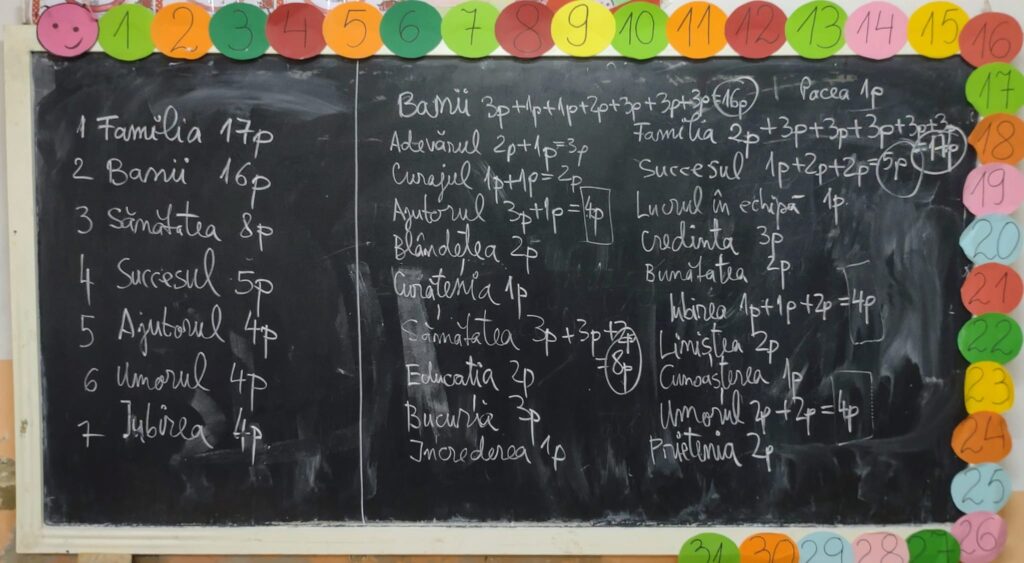 1 2 3 4 5 6 7 8 9 10 11 12 13 14 15 16
17
18
19
20
21
22
23
24
25
26
31 30 29 28 27
1 Familia 17p
2 Banii 16p
3 Sănătatea 8p
4 Succesul 5p
5 Ajutorul 4p
6 Umorul 4p
7 Iubirea 4p
Banii 3p+1p+1p+2p+3p+3p+3p=16p
Adevărul 2p+1p=3p
Curajul 1p+1p=2p
Ajutorul 3p+1p=4p
Blândețea 2p
Curățenia 1p
Sănătatea 3p+3p+2p
=8p
Educatia 2p
Bucuria 3p
Increderea 1p
Pacea 1p
Familia 2p+3p+3p+3p+3p+3p
=17p
Succesul 1p+2p+2p=5p
Lucrul în echipă 1p
Credinta 3p
Bunătatea 2p
Iubirea 1p+1p+2p=4p
Liniștea 2p
Cunoașterea 1p
Umorul 2p+2p=4p
Prietenia 2p